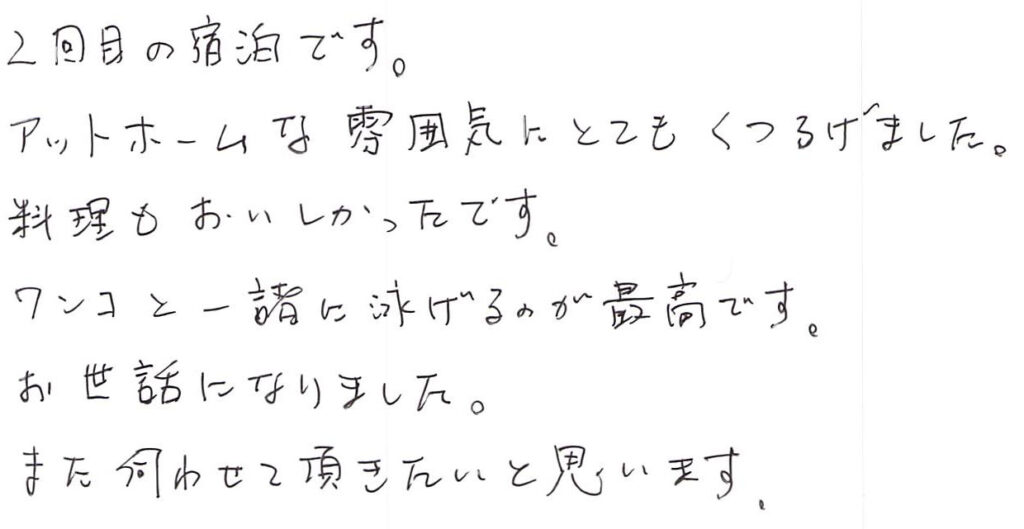 2回目の宿泊です。
アットホームな雰囲気にとてもくつろげました。
料理もおいしかったです。
ワンコと一諸に泳げるのが最高です。
お世話になりました。
また伺わせて頂きたいと思います。